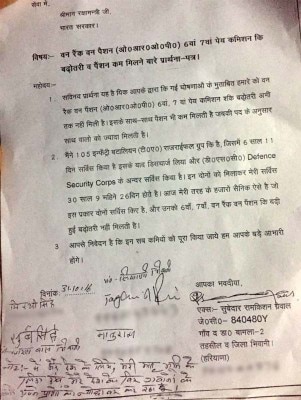 सेवा में,
श्रीमान रक्षामन्त्री जी,
भारत सरकार।
विषयः- वन रैंक वन पैंशन (ओ०आर०ओ०पी०) 6वां 7वां पेय कमिशन कि
बढ़ोतरी व पैंशन कम मिलने बारे प्रार्थना-पत्र।
महोदय,
1. सविनय प्रार्थना यह है पिक आपके द्वारा कि गई घोषणाओं के मुताबित हमारे को वन
रैंक वन पैंशन (ओ०आर०ओ०पी०) 6वां, 7 वां पेय कमिशन बढ़ोतरी अभी
तक नही मिली है। इसके साथ-साथ पैंशन भी कम मिलती है जबकी पद के अनुसार
साथ वालो को ज्यादा मिलती है।
2. मैंने 105 इन्फैंट्री बटालियन (टी०ए०) राजराईफल ग्रुप कि है, जिसमें 6 साल 11
दिन सर्विस किया है इसके बाद डिसचार्ज लिया और (डी०एस०सी०) Defence
Security Corps के अन्दर सर्विस किया है। इन दोनों को मिलाकर मेरी सर्विस
30 साल 9 महिने 26दिन होते है। आज मेरी तरह के हजारों सैनिक ऐसे है जो
इस प्रकार दोनों सर्विस किए है, और उनको 6वां, 7वां, वन रैंक वन पैंशन कि बढ़ी
हुई बढ़ोतरी नही मिलती है।
3. आपसे निवेदन है कि इन सब कमियों को पूरा किया जाये हम आपके बड़े आभारी
होगे।
दिनांक: 31.10.16
आपका भवदीया,
एक्स:- सुबेदार रामकिशन ग्रेवाल
जे०सी०- 840480Y
गॉव व डा० बामला-2
तहसील व जिला भिवानी।
(हरियाणा)